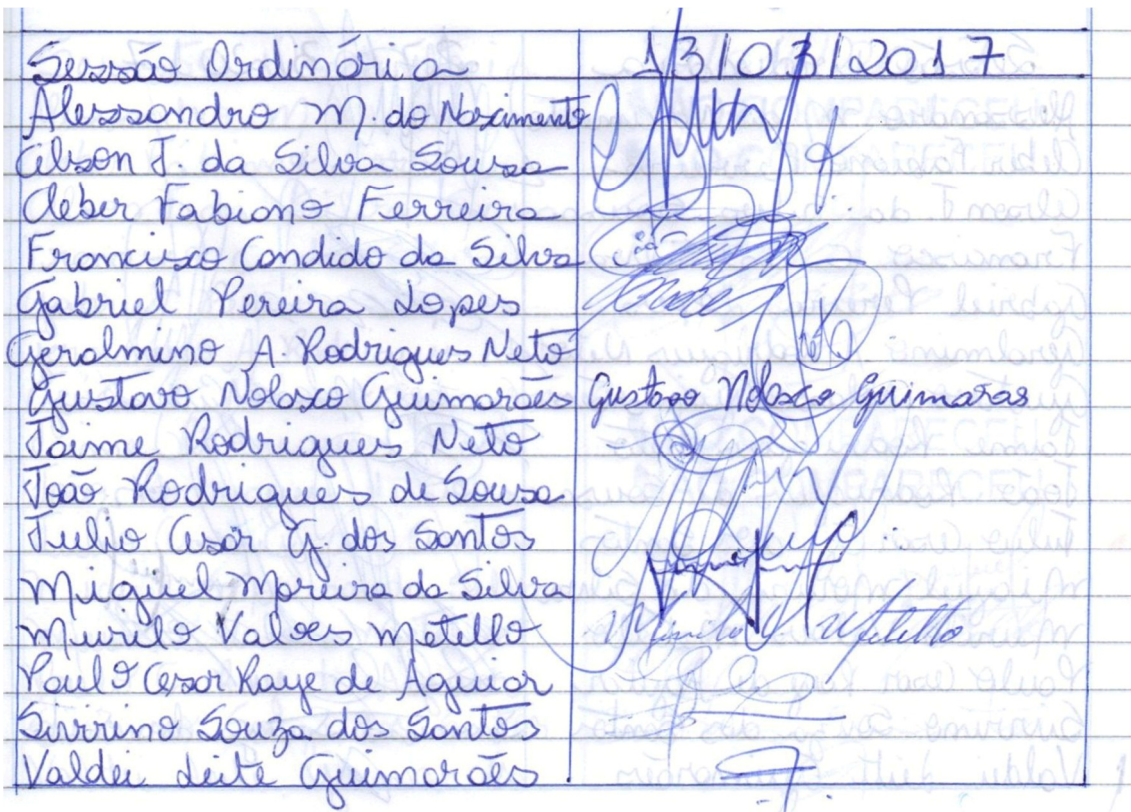 Sessão Ordinária 13/03/2017
Alessandro M. do Nascimento
Celson J. da Silva Souza
Cleber Fabiano Ferreira
Francisco Candido da Silva
Gabriel Pereira Lopes
Geralmino A. Rodrigues Neto
Gustavo Nolasco Guimarães Gustavo Nolasco Guimaras
Jaime Rodrigues Neto
João Rodrigues de Souza
Julio Cesar G. dos Santos
Miguel Moreira da Silva
Murilo Valoes Metello Murilo V Metello
Paulo Cesar Raye de Aguiar
Sivirino Souza dos Santos
Valdei Leite Guimarães